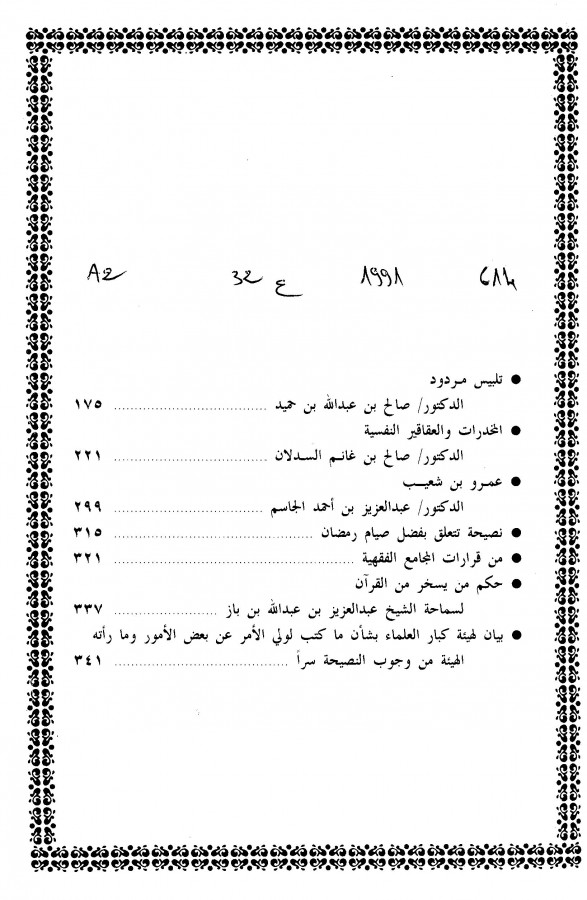 A2 32 ع 1991
● تلبيس مردود
الدكتور/ صالح بن عبدالله بن حميد ........ ١٧٥
● المخدرات والعقاقير النفسية
الدكتور/ صالح بن غانم السدلان ........ ٢٢١
● عمرو بن شعيب
الدكتور/ عبدالعزيز بن أحمد الجاسم ........ ٢٩٩
● نصيحة تتعلق بفضل صيام رمضان ........ ٣١٥
● من قرارات المجامع الفقهية ........ ٣٢١
● حكم من يسخر من القرآن
لسماحة الشيخ عبدالعزيز بن عبدالله بن باز ........ ٣٣٧
● بيان لهيئة كبار العلماء بشأن ما كتب لولي الأمر عن بعض الأمور وما رأته
الهيئة من وجوب النصيحة سراً ........ ٣٤١